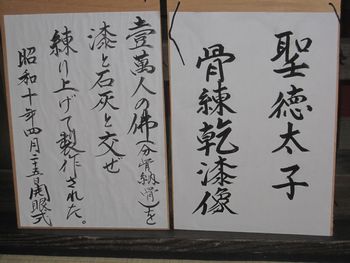 聖徳太子
骨練乾漆像
壹萬人の佛(分骨納骨)を
漆と石灰と交ぜ
練り上げて製作された。
昭和十年四月二十五日開眼式